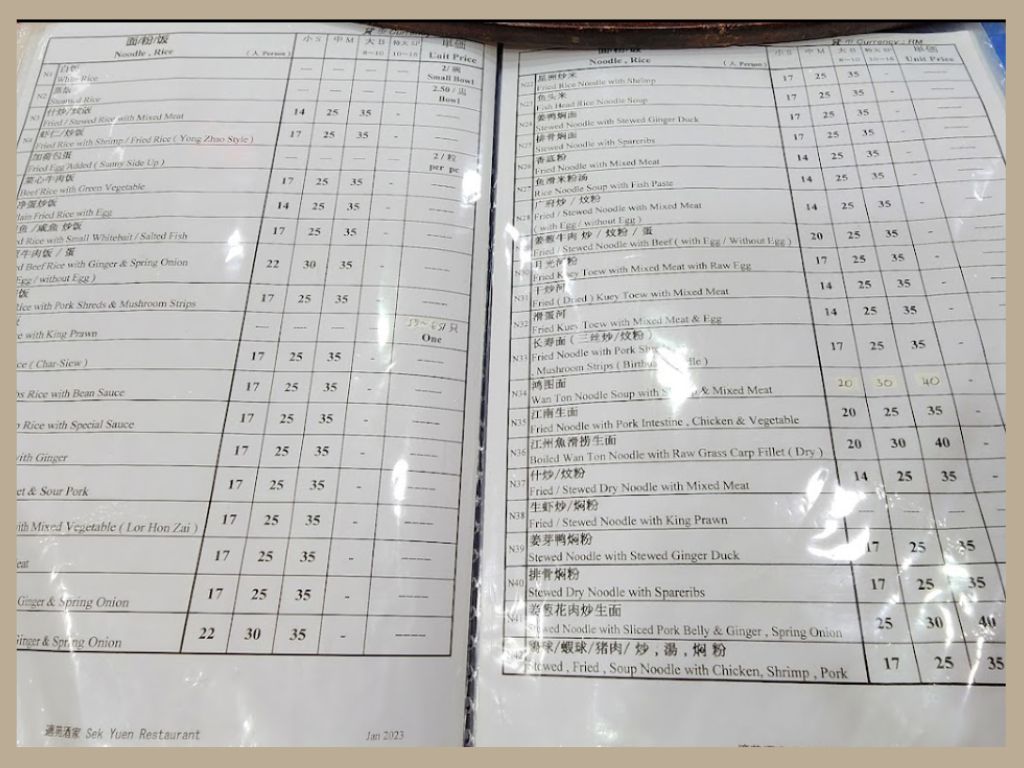 面/粉/饭
Noodle , Rice
( 人 Person )
小 S 中 M 大 B
8~10 10~16
Unit Price
N1 白饭
White Rice
— — — — 2/ 碗
Small Bowl
N2
Steamed Rice
— — — — 2.50 /
Bowl
N3 什炒/炆飯
Fried / Stewed Rice with Mixed Meat
14 25 35 - ——
N4 虾仁/炒飯
Fried Rice with Shrimp / Fried Rice ( Yong Zhao Style )
17 25 35 - ——
加荷包蛋
Fried Egg Added ( Sunny Side Up )
— — — — 2 / 粒
per pc
菜心牛肉饭
Beef Rice with Green Vegetable
17 25 35 - ——
净蛋炒饭
lain Fried Rice with Egg
14 25 35 - ——
鱼 /咸鱼 炒饭
d Rice with Small Whitebait / Salted Fish
17 25 35 - ——
牛肉饭 / 蛋
d Beef Rice with Ginger & Spring Onion
Egg / without Egg )
22 30 35 - ——
饭
ice with Pork Shreds & Mushroom Strips
17 25 35 - ——
e with King Prawn
— — — —
One
ce ( Char-Siew )
17 25 35 - ——
s Rice with Bean Sauce
17 25 35 - ——
Rice with Special Sauce
17 25 35 - ——
with Ginger
17 25 35 - ——
et & Sour Pork
17 25 35 - ——
ith Mixed Vegetable ( Lor Hon Zai )
17 25 35 - ——
eat
17 25 35 - ——
Ginger & Spring Onion
17 25 35 - ——
Ginger & Spring Onion
22 30 35 - ——
適苑酒家 Sek Yuen Restaurant
Jan 2023
貨币 Currency : RM
Noodle , Rice
( 人 Person )
小 S 中 M 大 B
8~10 10~16
Unit Price
N22 星洲炒米
Fried Rice Noodle with Shrimp
17 25 35
N23 鱼头米
Fish Head Rice Noodle Soup
17 25 35
N24 姜鸭焖面
Stewed Noodle with Stewed Ginger Duck
17 25 35
N25 排骨焖面
Stewed Noodle with Spareribs
17 25 35
N26 香底粉
Fried Noodle with Mixed Meat
14 25 35
N27 鱼滑米粉汤
Rice Noodle Soup with Fish Paste
14 25 35
N28 广府炒 / 炆粉
Fried / Stewed Noodle with Mixed Meat
( with Egg / without Egg )
14 25 35
姜葱牛肉 炒 / 炆粉 / 蛋
Fried / Stewed Noodle with Beef ( with Egg / Without Egg )
20 25 35
月光河粉
Fried Kuey Toew with Mixed Meat with Raw Egg
17 25 35
N31 干炒河
Fried ( Dried ) Kuey Toew with Mixed Meat
14 25 35
N32 滑蛋河
Fried Kuey Toew with Mixed Meat & Egg
14 25 35
N33 长寿面 ( 三丝炒/炆粉 )
Fried Noodle with Pork
, Mushroom Strips (
17 25 35
N34 鸿图面
Wan Ton Noodle Soup with & Mixed Meat
20 30 40 -
N35 江南生面
Fried Noodle with Pork Intestine , Chicken & Vegetable
20 25 35 -
N36 江州魚滑捞生面
Boiled Wan Ton Noodle with Raw Grass Carp Fillet ( Dry )
20 30 40 -
N37 什炒/炆粉
Fried / Stewed Dry Noodle with Mixed Meat
14 25 35 -
N38 生虾炒/焖粉
Fried / Stewed Noodle with King Prawn
— — —
N39 姜芽鸭焖粉
Stewed Noodle with Stewed Ginger Duck
17 25 35
N40 排骨焖粉
Stewed Dry Noodle with Spareribs
17 25 35
N41 姜葱花肉炒生面
Stewed Noodle with Sliced Pork Belly & Ginger , Spring Onion
25 30 40
球/蝦球/猪肉/ 炒 , 湯 , 焖 粉
Stewed , Fried , Soup Noodle with Chicken, Shrimp , Pork
17 25 35